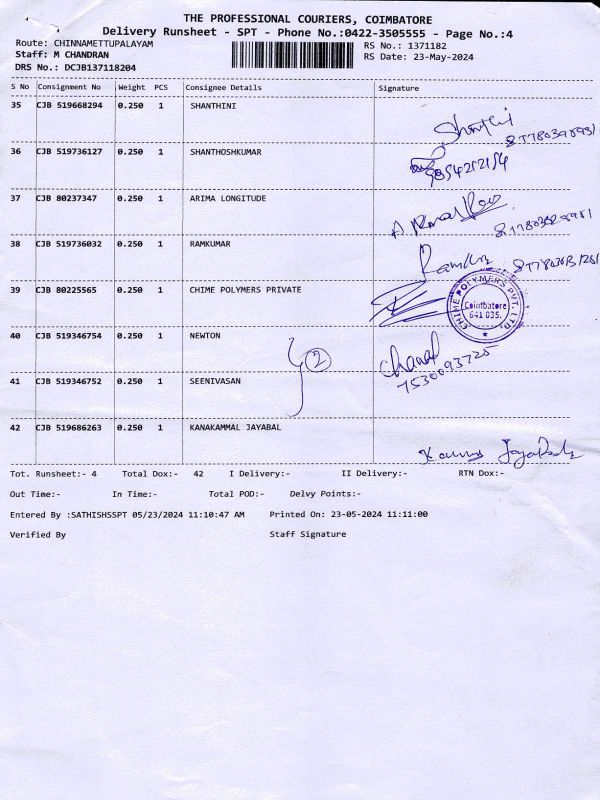 THE PROFESSIONAL COURIERS, COIMBATORE
Delivery Runsheet - SPT - Phone No.:0422-3505555 - Page No.:4
Route: CHINNAMETTUPALAYAM
RS No.: 1371182
Staff: M CHANDRAN
RS Date: 23-May-2024
DRS No.: DCJB137118204
S No Consignment No Weight PCS Consignee Details Signature
35 CJB 519668294 0.250 1 SHANTHINI
Shanthi
36 CJB 519736127 0.250 1 SHANTHOSHKUMAR
37 CJB 80237347 0.250 1 ARIMA LONGITUDE
38 CJB 519736032 0.250 1 RAMKUMAR
39 CJB 80225565 0.250 1 CHIME POLYMERS PRIVATE
CHIME POLYMERS PVT. LTD.
Coimbatore
641 035.
40 CJB 519346754 0.250 1 NEWTON
2
41 CJB 519346752 0.250 1 SEENIVASAN
7530093725
42 CJB 519686263 0.250 1 KANAKAMMAL JAYABAL
Tot. Runsheet:- 4 Total Dox:- 42 I Delivery:- II Delivery:- RTN Dox:-
Out Time:- In Time:- Total POD:- Delvy Points:-
Entered By :SATHISHSSPT 05/23/2024 11:10:47 AM Printed On: 23-05-2024 11:11:00
Verified By Staff Signature